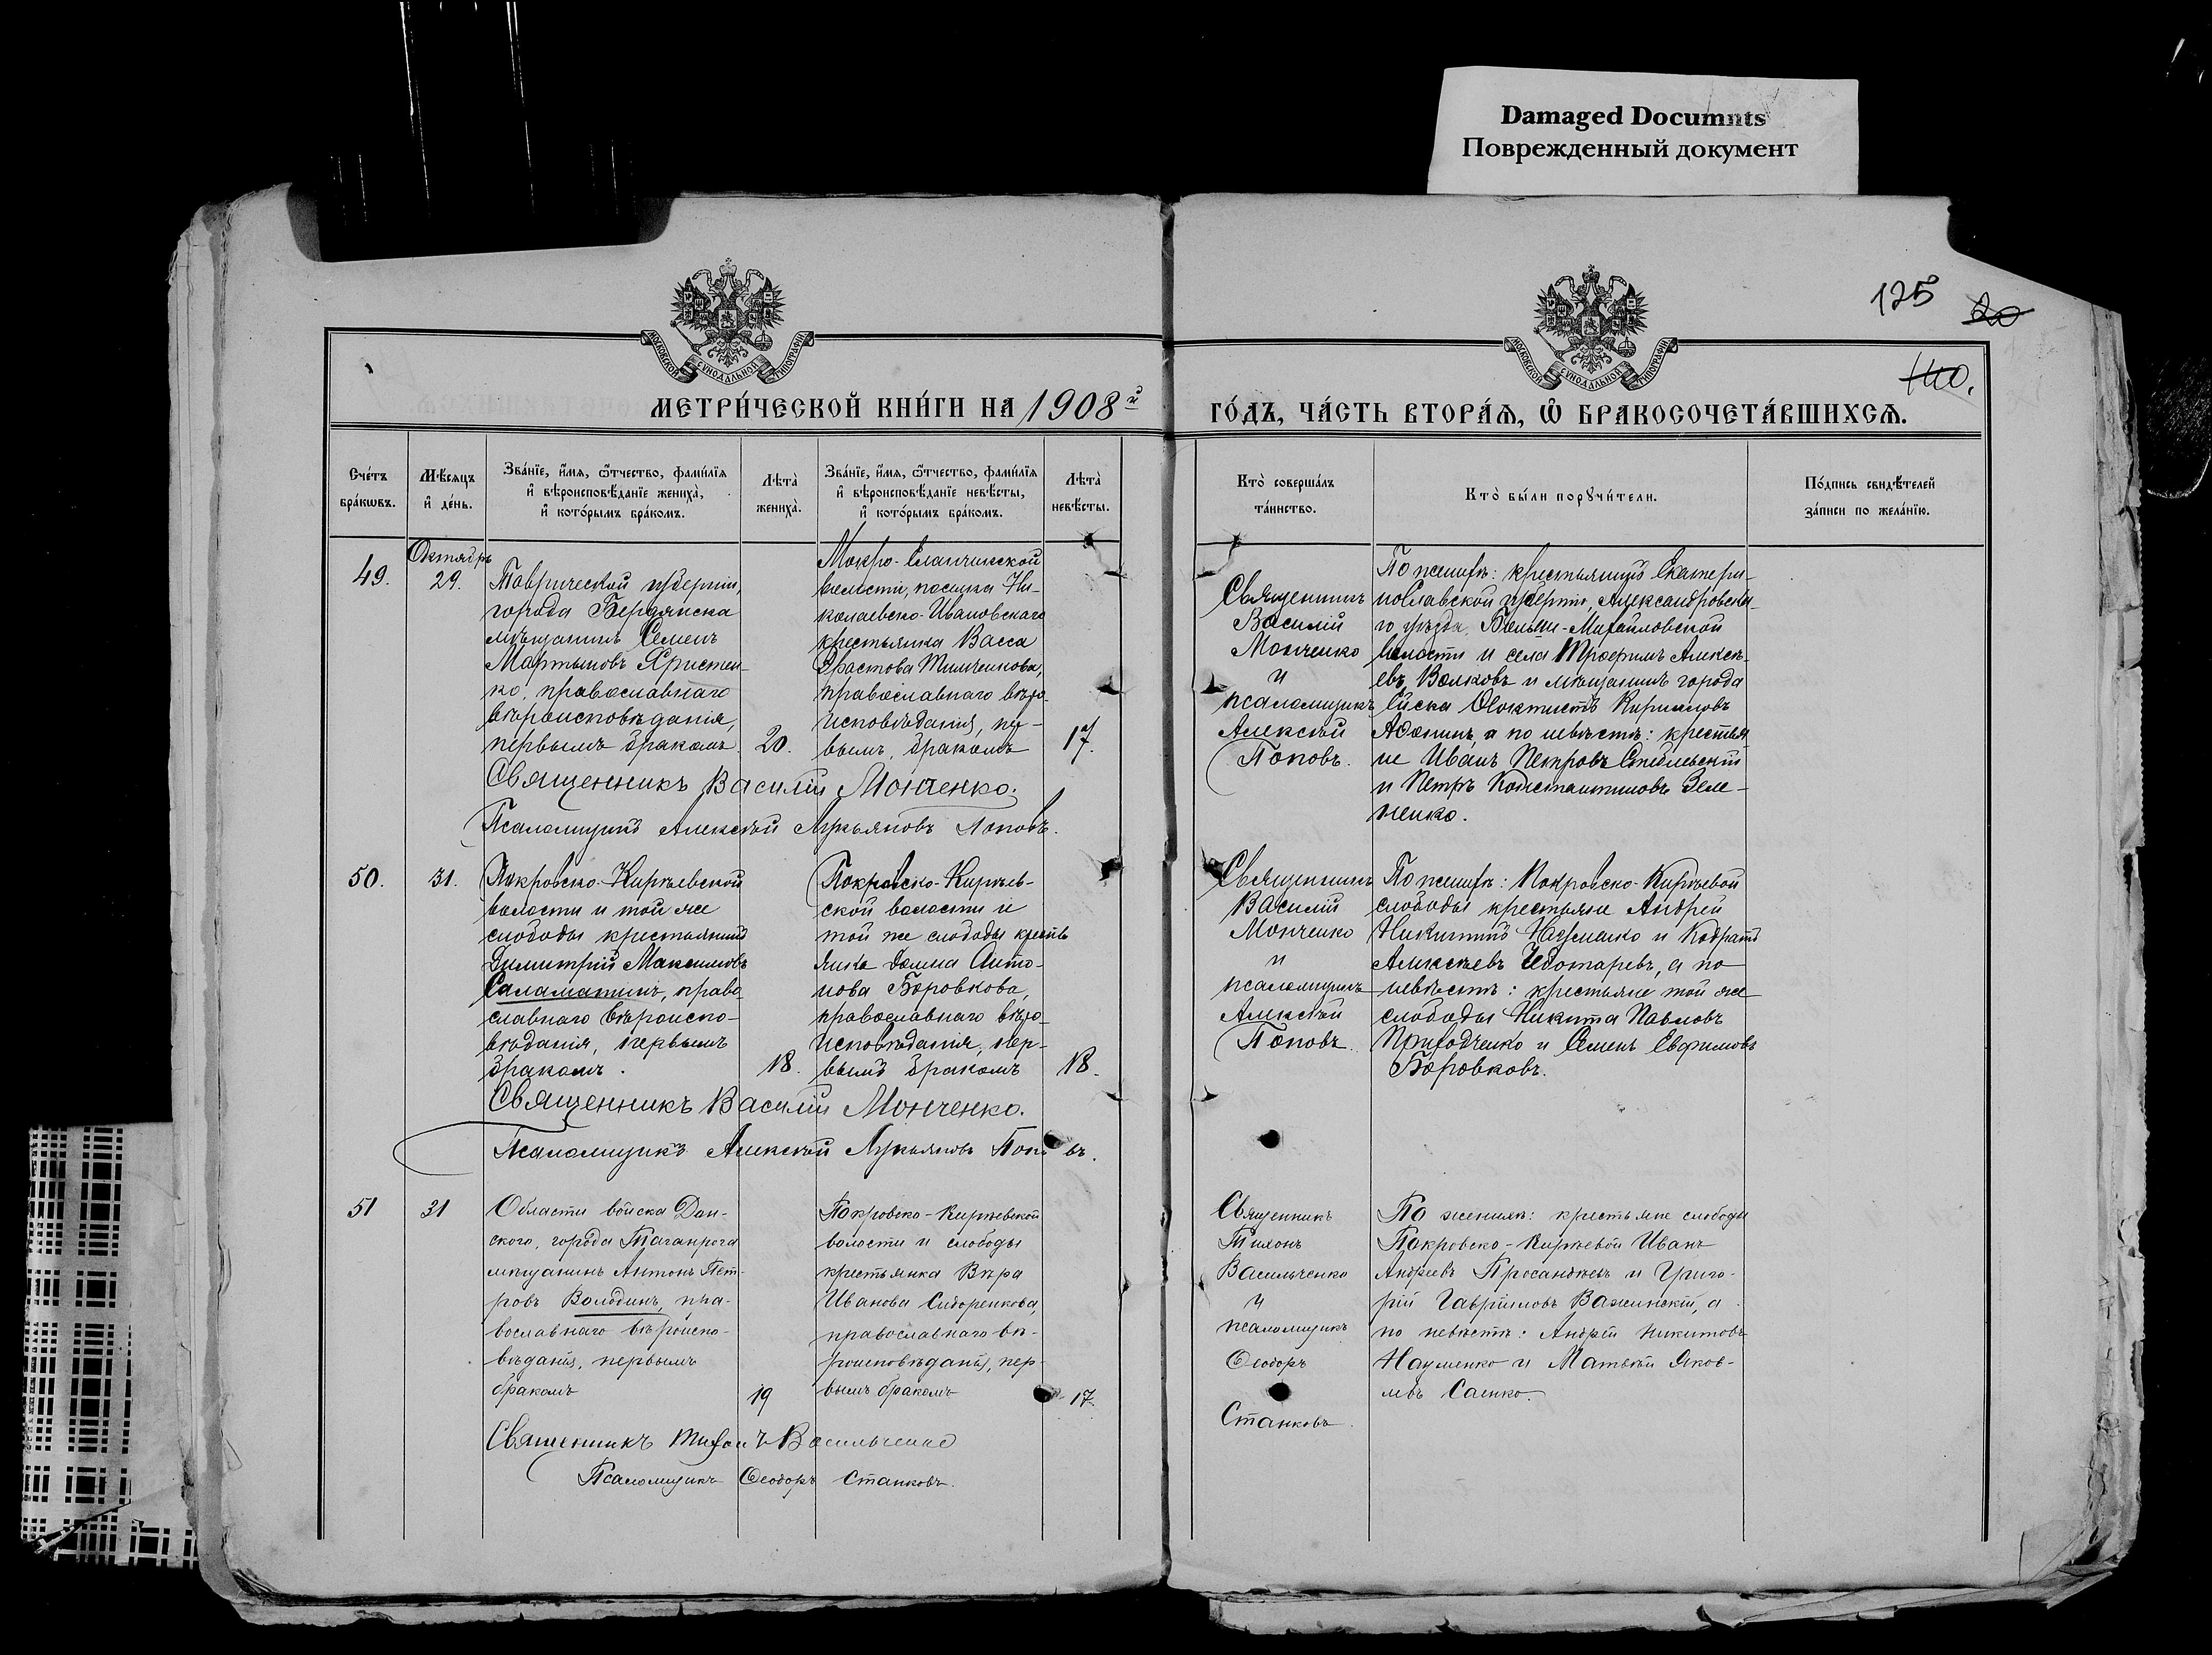 Damaged Documnts
Поврежденный документ
125
20
140.
МОСКОВСКОЙ СѴНОДАЛЬНОЙ ТИПОГРАФІИ
МОСКОВСКОЙ СѴНОДАЛЬНОЙ ТИПОГРАФІИ
МЕТРИ́ЧЕСКОЙ КНИ́ГИ НА 1908й
ГО́ДЪ, ЧА́СТЬ ВТОРА́Ѧ, Ѽ БРАКОСОЧЕТА́ВШИХСѦ.
Сче́тъ бра́кѡвъ.
Мѣ́сяцъ и҆ де́нь.
Зва́нїе, и҆́мѧ, ѻ҆́тчество, фами́лїѧ
и҆ вѣроисповѣ́данїе жениха̀,
и҆ кото́рымъ бра́комъ.
Лѣта̀ жениха̀.
Зва́нїе, и҆́мѧ, ѻ҆́тчество, фами́лїѧ
и҆ вѣроисповѣ́данїе невѣ́сты,
и҆ кото́рымъ бра́комъ.
Лѣта̀ невѣ́сты.
Кто̀ соверша́лъ
та́инство.
Кто̀ бы́ли порꙋчи́тели.
По́дпись свидѣ́телей
за́писи по жела́нїю.
49.
Октябрь
29.
Таврической губерніи,
города Бердянска
мѣщанинъ Семенъ
Мартыновъ Христен-
ко, православнаго
вѣроисповѣданія,
первымъ бракомъ
20.
Мокро-Еланчикской
волости, поселка Ни-
колаевско-Ивановскаго
крестьянка Васса
Эрастова Тимченкова,
православнаго вѣро-
исповѣданія, пер-
вымъ бракомъ
17.
Священникъ
Василій
Монченко
и
псаломщикъ
Алексѣй
Поповъ.
По женихѣ: крестьянинъ Екатери-
нославской губерніи, Александровска-
го уѣзда, Больше-Михайловской
волости и села Трофимъ Алексѣ-
евъ Волковъ и мѣщанинъ города
Ейска Ѳеоктистъ Кирилловъ
Афонинъ, а по невѣстѣ: крестья-
не Иванъ Петровъ
и Петръ Константиновъ Зеле-
ненко.
Священникъ Василій Монченко.
Псаломщикъ Алексѣй Лукьяновъ Поповъ.
50.
31.
Покровско-Кирѣевской
волости и той же
слободы крестьянинъ
Димитрій Максимовъ
Саламатинъ, право-
славнаго вѣроиспо-
вѣданія, первымъ
бракомъ.
18.
Покровско-Кирѣев-
ской волости и
той же слободы кресть
янка Домна Анто-
нова Боровкова,
православнаго вѣро-
исповѣданія, пер-
вымъ бракомъ
18.
Священникъ
Василій
Монченко
и
псаломщикъ
Алексѣй
Поповъ.
По женихѣ: Покровско-Кирѣевой
слободы крестьяне Андрей
Никитинъ Науменко и Кодратъ
Алексѣевъ Чеботаревъ, а по
невѣстѣ: крестьяне той же
слободы Никита Павловъ
Приходченко и Семенъ Евфимовъ
Боровковъ.
Священникъ Василій Монченко.
Псаломщикъ Алексѣй Лукьяновъ Поповъ.
51
31
Области войска Дон-
ского, города Таганрога
мѣщанинъ Антонъ Пет-
ровъ Володинъ, пра-
вославнаго вѣроиспо-
вѣданія, первымъ
бракомъ
19
Покровско-Кирѣевской
волости и слободы
крестьянка Вѣра
Иванова Сидоренкова,
православнаго вѣ-
роисповѣданія, пер-
вымъ бракомъ
17.
Священникъ
Тихонъ
Васильченко
и
псаломщикъ
Ѳеодоръ
Станковъ.
По женихѣ: крестьяне слободы
Покровско-Кирѣевой Иванъ
Андреевъ и Григо-
рій Гавріиловъ Важинскій, а
по невѣстѣ: Андрей Никитовъ
Науменко и Матвѣй Яков-
левъ Саенко.
Священникъ Тихонъ Васильченко
Псаломщикъ Ѳеодоръ Станковъ.